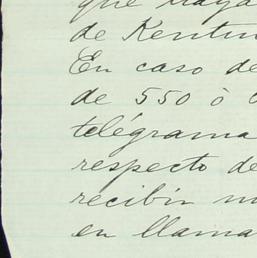 que haya
de Kentu
En caso de
de 550 ò
telégrama
respecto de
recibir
en llama